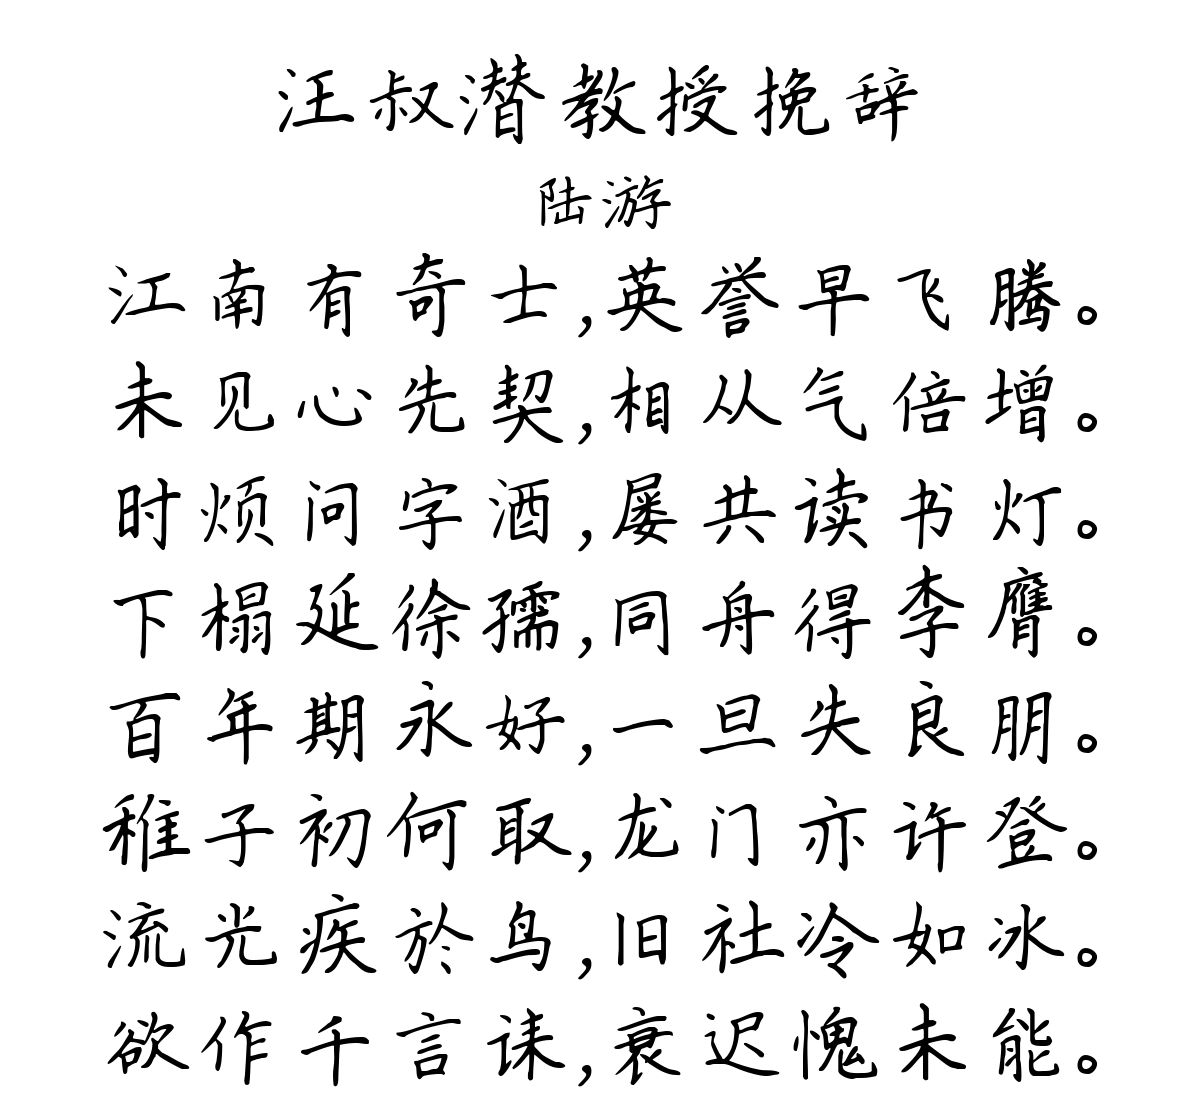 汪叔潜教授挽辞
陆游
江南有奇士,英誉早飞腾。
未见心先契,相从气倍增。
时烦问字酒,屡共读书灯。
下榻延徐孺,同舟得李膺。
百年期永好,一旦失良朋。
稚子初何取,龙门亦许登。
流光疾於鸟,旧社冷如冰。
欲作千言诔,衰迟愧未能。